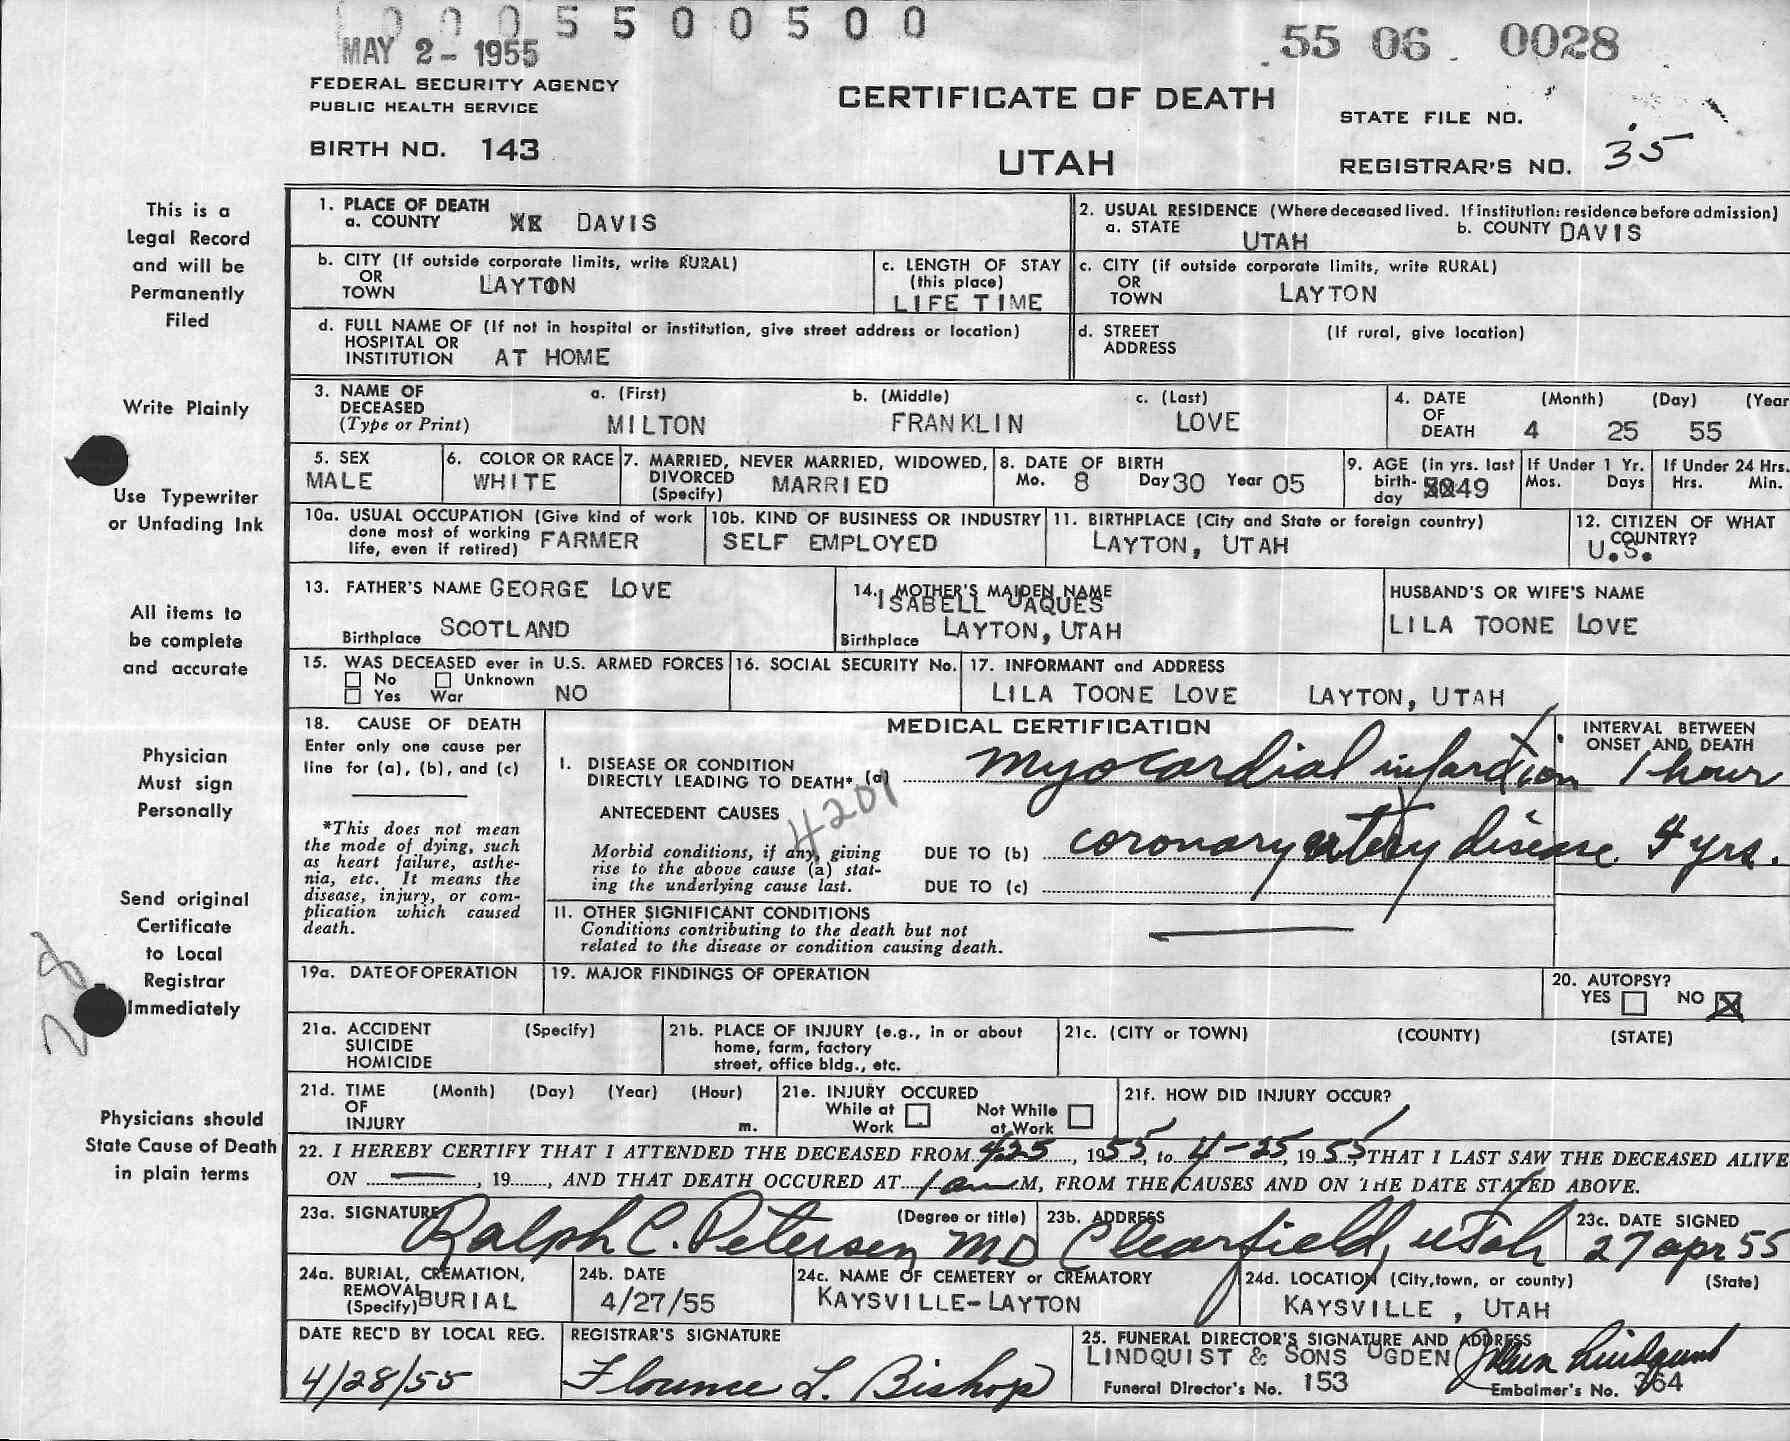 0005500500
MAY 2 - 1955
55 06 0028
FEDERAL SECURITY AGENCY
PUBLIC HEALTH SERVICE
CERTIFICATE OF DEATH
STATE FILE NO.
BIRTH NO. 143
UTAH
REGISTRAR'S NO. 35
This is a
Legal Record
and will be
Permanently
Filed
Write Plainly
Use Typewriter
or Unfading Ink
All items to
be complete
and accurate
Physician
Must sign
Personally
Send original
Certificate
to Local
Registrar
Immediately
Physicians should
State Cause of Death
in plain terms
1. PLACE OF DEATH
a. COUNTY DAVIS
2. USUAL RESIDENCE (Where deceased lived. If institution: residence before admission)
a. STATE UTAH b. COUNTY DAVIS
b. CITY (If outside corporate limits, write RURAL)
OR
TOWN LAYTON
c. LENGTH OF STAY
(this place)
LIFE TIME
c. CITY (if outside corporate limits, write RURAL)
OR
TOWN LAYTON
d. FULL NAME OF (If not in hospital or institution, give street address or location)
HOSPITAL OR
INSTITUTION AT HOME
d. STREET (If rural, give location)
ADDRESS
3. NAME OF
DECEASED
(Type or Print)
a. (First) b. (Middle) c. (Last)
MILTON FRANKLIN LOVE
4. DATE (Month) (Day) (Year
OF
DEATH 4 25 55
5. SEX
MALE
6. COLOR OR RACE
WHITE
7. MARRIED, NEVER MARRIED, WIDOWED,
DIVORCED
(Specify) MARRIED
8. DATE OF BIRTH
Mo. 8 Day 30 Year 05
9. AGE (in yrs. last
birth-
day 49
If Under 1 Yr.
Mos. Days
If Under 24 Hrs.
Hrs. Min.
10a. USUAL OCCUPATION (Give kind of work
done most of working
life, even if retired) FARMER
10b. KIND OF BUSINESS OR INDUSTRY
SELF EMPLOYED
11. BIRTHPLACE (City and State or foreign country)
LAYTON, UTAH
12. CITIZEN OF WHAT
COUNTRY?
U.S.
13. FATHER'S NAME GEORGE LOVE
Birthplace SCOTLAND
14. MOTHER'S MAIDEN NAME
ISABELL JAQUES
Birthplace LAYTON, UTAH
HUSBAND'S OR WIFE'S NAME
LILA TOONE LOVE
15. WAS DECEASED ever in U.S. ARMED FORCES
No Unknown
Yes War NO
16. SOCIAL SECURITY No.
17. INFORMANT and ADDRESS
LILA TOONE LOVE LAYTON, UTAH
18. CAUSE OF DEATH
Enter only one cause per
line for (a), (b), and (c)
*This does not mean
the mode of dying, such
as heart failure, asthe-
nia, etc. It means the
disease, injury, or com-
plication which caused
death.
MEDICAL CERTIFICATION
INTERVAL BETWEEN
ONSET AND DEATH
I. DISEASE OR CONDITION
DIRECTLY LEADING TO DEATH* (a) myocardial infarction 1 hour
ANTECEDENT CAUSES
4201
Morbid conditions, if any, giving
rise to the above cause (a) stat-
ing the underlying cause last.
DUE TO (b) coronary artery disease 4 yrs.
DUE TO (c)
II. OTHER SIGNIFICANT CONDITIONS
Conditions contributing to the death but not
related to the disease or condition causing death.
19a. DATE OF OPERATION
19. MAJOR FINDINGS OF OPERATION
20. AUTOPSY?
YES NO X
21a. ACCIDENT (Specify)
SUICIDE
HOMICIDE
21b. PLACE OF INJURY (e.g., in or about
home, farm, factory
street, office bldg., etc.
21c. (CITY or TOWN) (COUNTY) (STATE)
21d. TIME (Month) (Day) (Year) (Hour)
OF
INJURY m.
21e. INJURY OCCURED
While at Work Not While at Work
21f. HOW DID INJURY OCCUR?
22. I HEREBY CERTIFY THAT I ATTENDED THE DECEASED FROM 4 25, 1955, to 4-25, 1955, THAT I LAST SAW THE DECEASED ALIVE
ON —, 19....., AND THAT DEATH OCCURED AT 1 am M, FROM THE CAUSES AND ON THE DATE STATED ABOVE.
23a. SIGNATURE (Degree or title)
Ralph C. Petersen MD
23b. ADDRESS
Clearfield, Utah
23c. DATE SIGNED
27 apr 55
24a. BURIAL, CREMATION,
REMOVAL
(Specify) BURIAL
24b. DATE
4/27/55
24c. NAME OF CEMETERY or CREMATORY
KAYSVILLE-LAYTON
24d. LOCATION (City, town, or county) (State)
KAYSVILLE, UTAH
DATE REC'D BY LOCAL REG.
4/28/55
REGISTRAR'S SIGNATURE
Florence L. Bishop
25. FUNERAL DIRECTOR'S SIGNATURE AND ADDRESS
LINDQUIST & SONS OGDEN Lindquist
Funeral Director's No. 153 Embalmer's No. 364